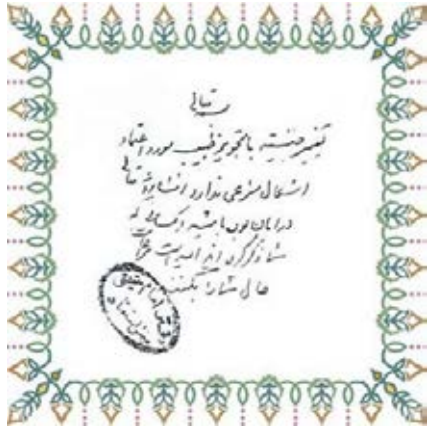 بسمه تعالی
تغییر جنسیت با تجویز طبیب مورد اعتماد
اشکال شرعی ندارد انشاءالله تعالی
در امان بوده باشید و کسانی که
شما ذکر کردید امید است مراعات
حال شما را بکنند